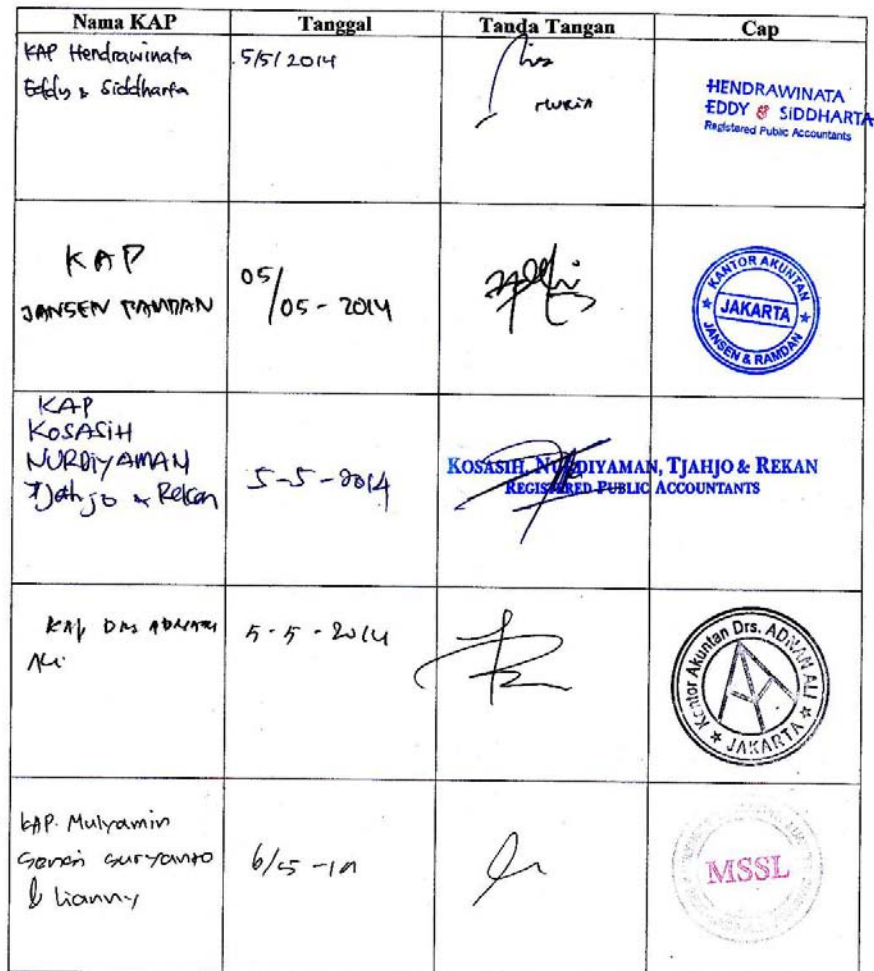 Nama KAP Tanggal Tanda Tangan Cap
KAP Hendrawinata 5/5/2014
Eddy & Siddharta
HENDRAWINATA
EDDY & SIDDHARTA
Registered Public Accountants
KAP
JANSEN RAMDAN
05/05-2014
KANTOR AKUNTAN
JAKARTA
JANSEN & RAMDAN
KAP
KOSASIH
NURDIYAMAN
Tjahjo & Rekan
5-5-2014
KOSASIH, NURDIYAMAN, TJAHJO & REKAN
REGISTERED PUBLIC ACCOUNTANTS
KAP DRS ADNAN
Ali
5-5-2014
Kantor Akuntan Drs. ADNAN ALI
JAKARTA
KAP. Mulyamin
Sensi Suryanto
& Lianny
MSSL